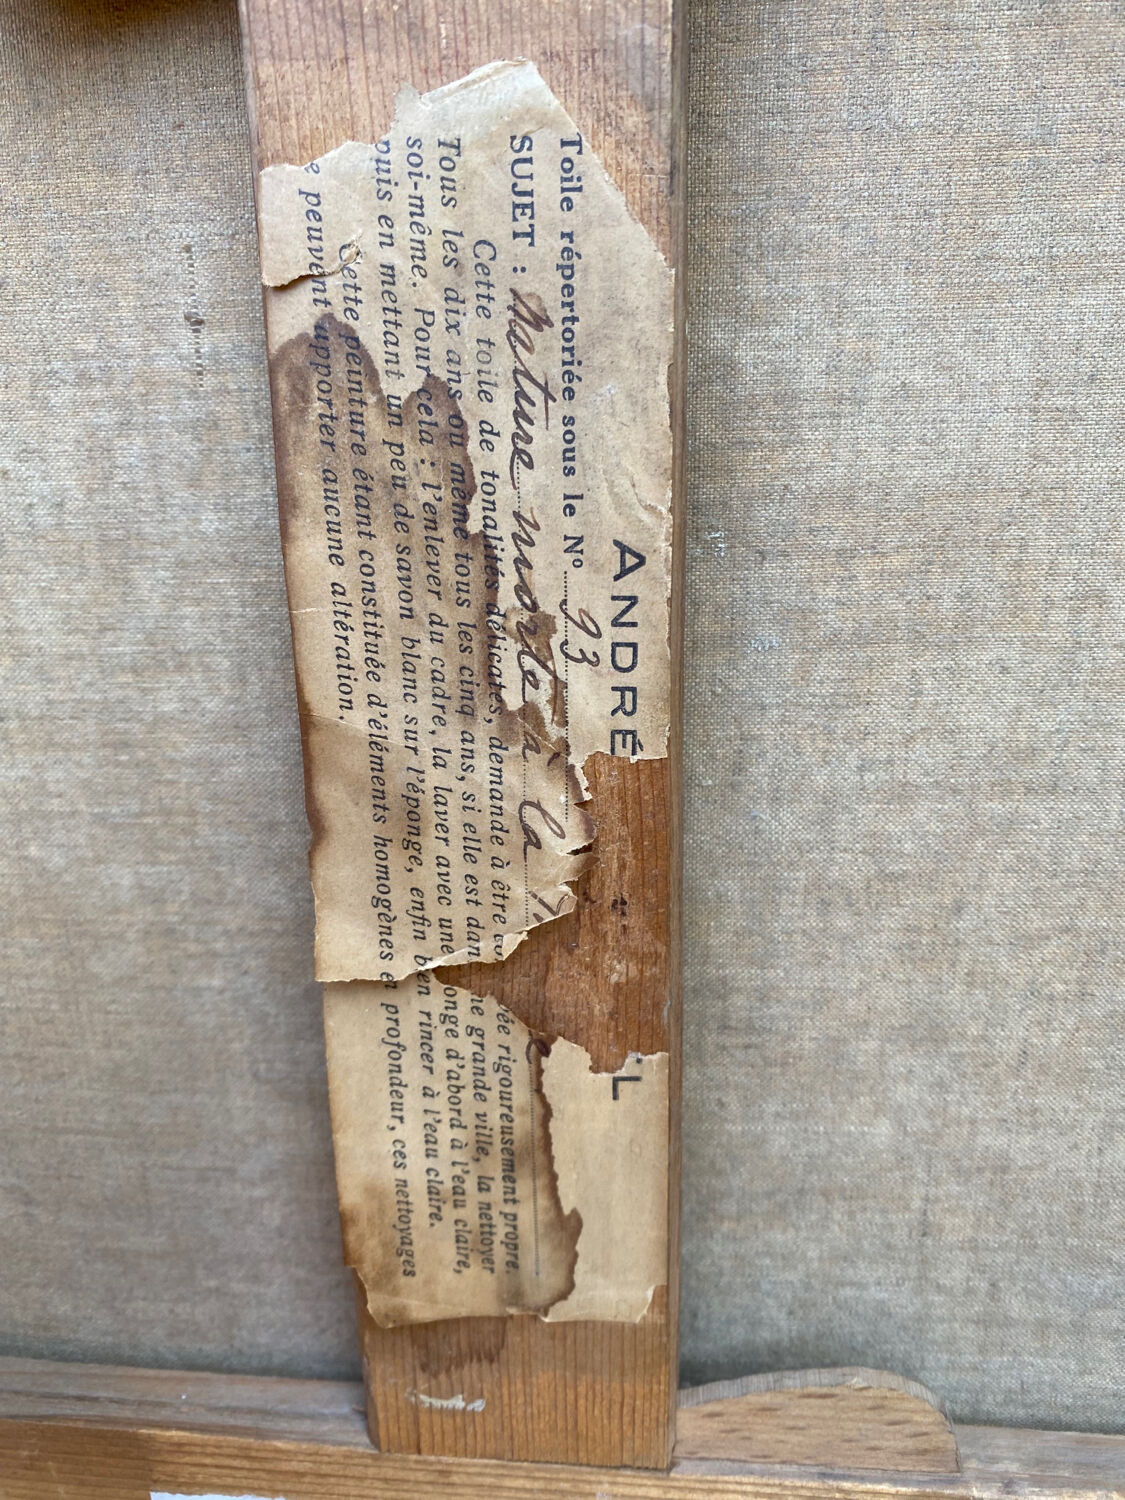 ANDRÉ L
Toile répertoriée sous le Nº 93
SUJET : Nature morte à la
Cette toile de tonalités délicates, demande à être rigoureusement propre.
Tous les dix ans ou même tous les cinq ans, si elle est dans une grande ville, la nettoyer
soi-même. Pour cela : l'enlever du cadre, la laver avec une éponge d'abord à l'eau claire,
puis en mettant un peu de savon blanc sur l'éponge, enfin bien rincer à l'eau claire.
Cette peinture étant constituée d'éléments homogènes en profondeur, ces nettoyages
e peuvent apporter aucune altération.